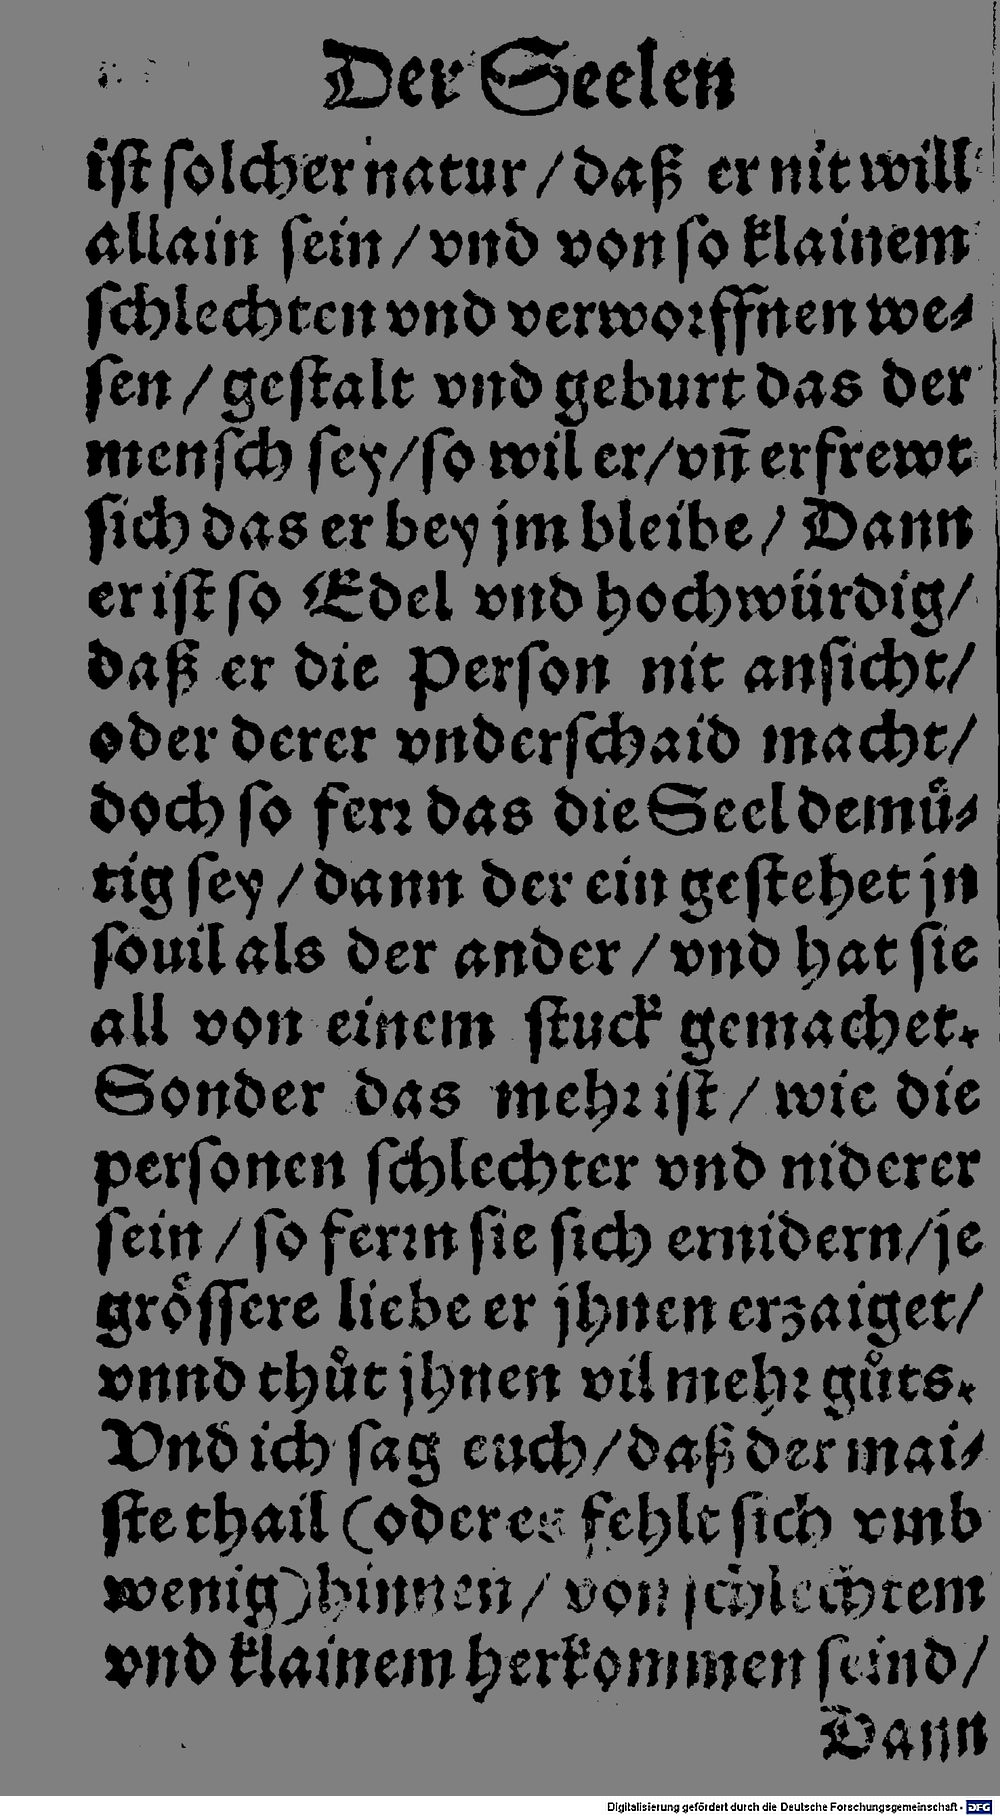 Der Seelen
ist solcher natur / daß er nit will
allain sein / vnd von so klainem
schlechten vnd verworffnen we-
sen / gestalt vnd geburt das der
mensch sey / so wil er / vn̄ erfrewt
sich das er bey jm bleibe / Dann
er ist so Edel vnd hochwürdig /
daß er die Person nit ansicht /
oder derer vnderschaid macht /
doch so ferr das die Seel demuͤ-
tig sey / dann der ein gestehet jn
souil als der ander / vnd hat sie
all von einem stuck gemachet.
Sonder das mehr ist / wie die
personen schlechter vnd niderer
sein / so ferrn sie sich ernidern / je
groͤssere liebe er jhnen erzaiget /
vnnd thuͦt jhnen vil mehr guͦts.
Vnd ich sag euch / daß der mai-
ste thail (oder es fehlt sich vmb
wenig) hinnen / von schlechtem
vnd klainem herkommen seind /
Dann
Digitalisierung gefördert durch die Deutsche Forschungsgemeinschaft - DFG